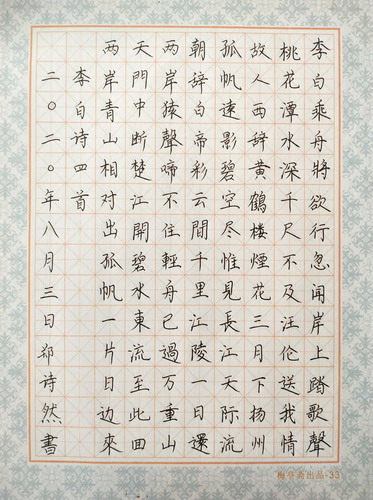 李白乘舟將欲行忽闻岸上踏歌聲
桃花潭水深千尺不及汪伦送我情
故人西辞黄鶴楼煙花三月下扬州
孤帆遠影碧空尽惟見長江天际流
朝辞白帝彩云間千里江陵一日還
两岸猿聲啼不住輕舟已過万重山
天門中断楚江開碧水東流至此回
两岸青山相对出孤帆一片日边來
李白诗四首
二〇二〇年八月三日郑诗然書
梅亭斋出品-33